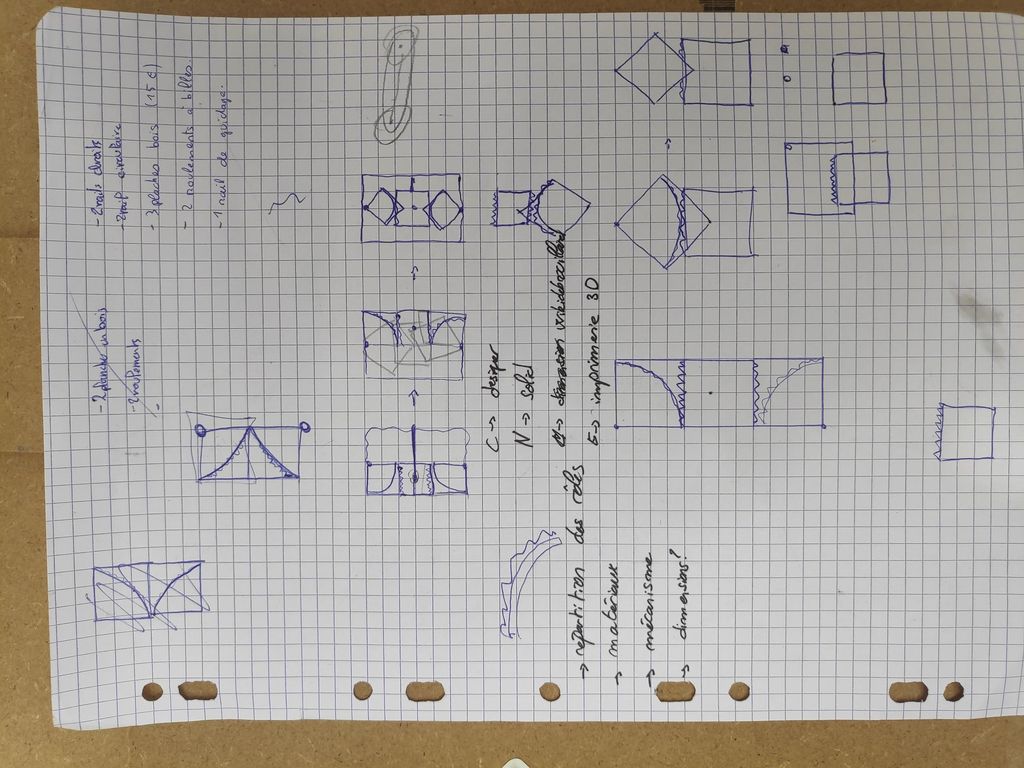 - 2 rails droits
- 2 rail circulaire
- 3 planches bois (15€)
- 2 roulements à billes
- 1 rail de guidage.
- 2 planche en bois
- 2 roulements
C -> designer
N -> solid
E -> imprimerie 3D
-> répartition des rôles
-> matériaux
-> mécanisme
-> dimensions?